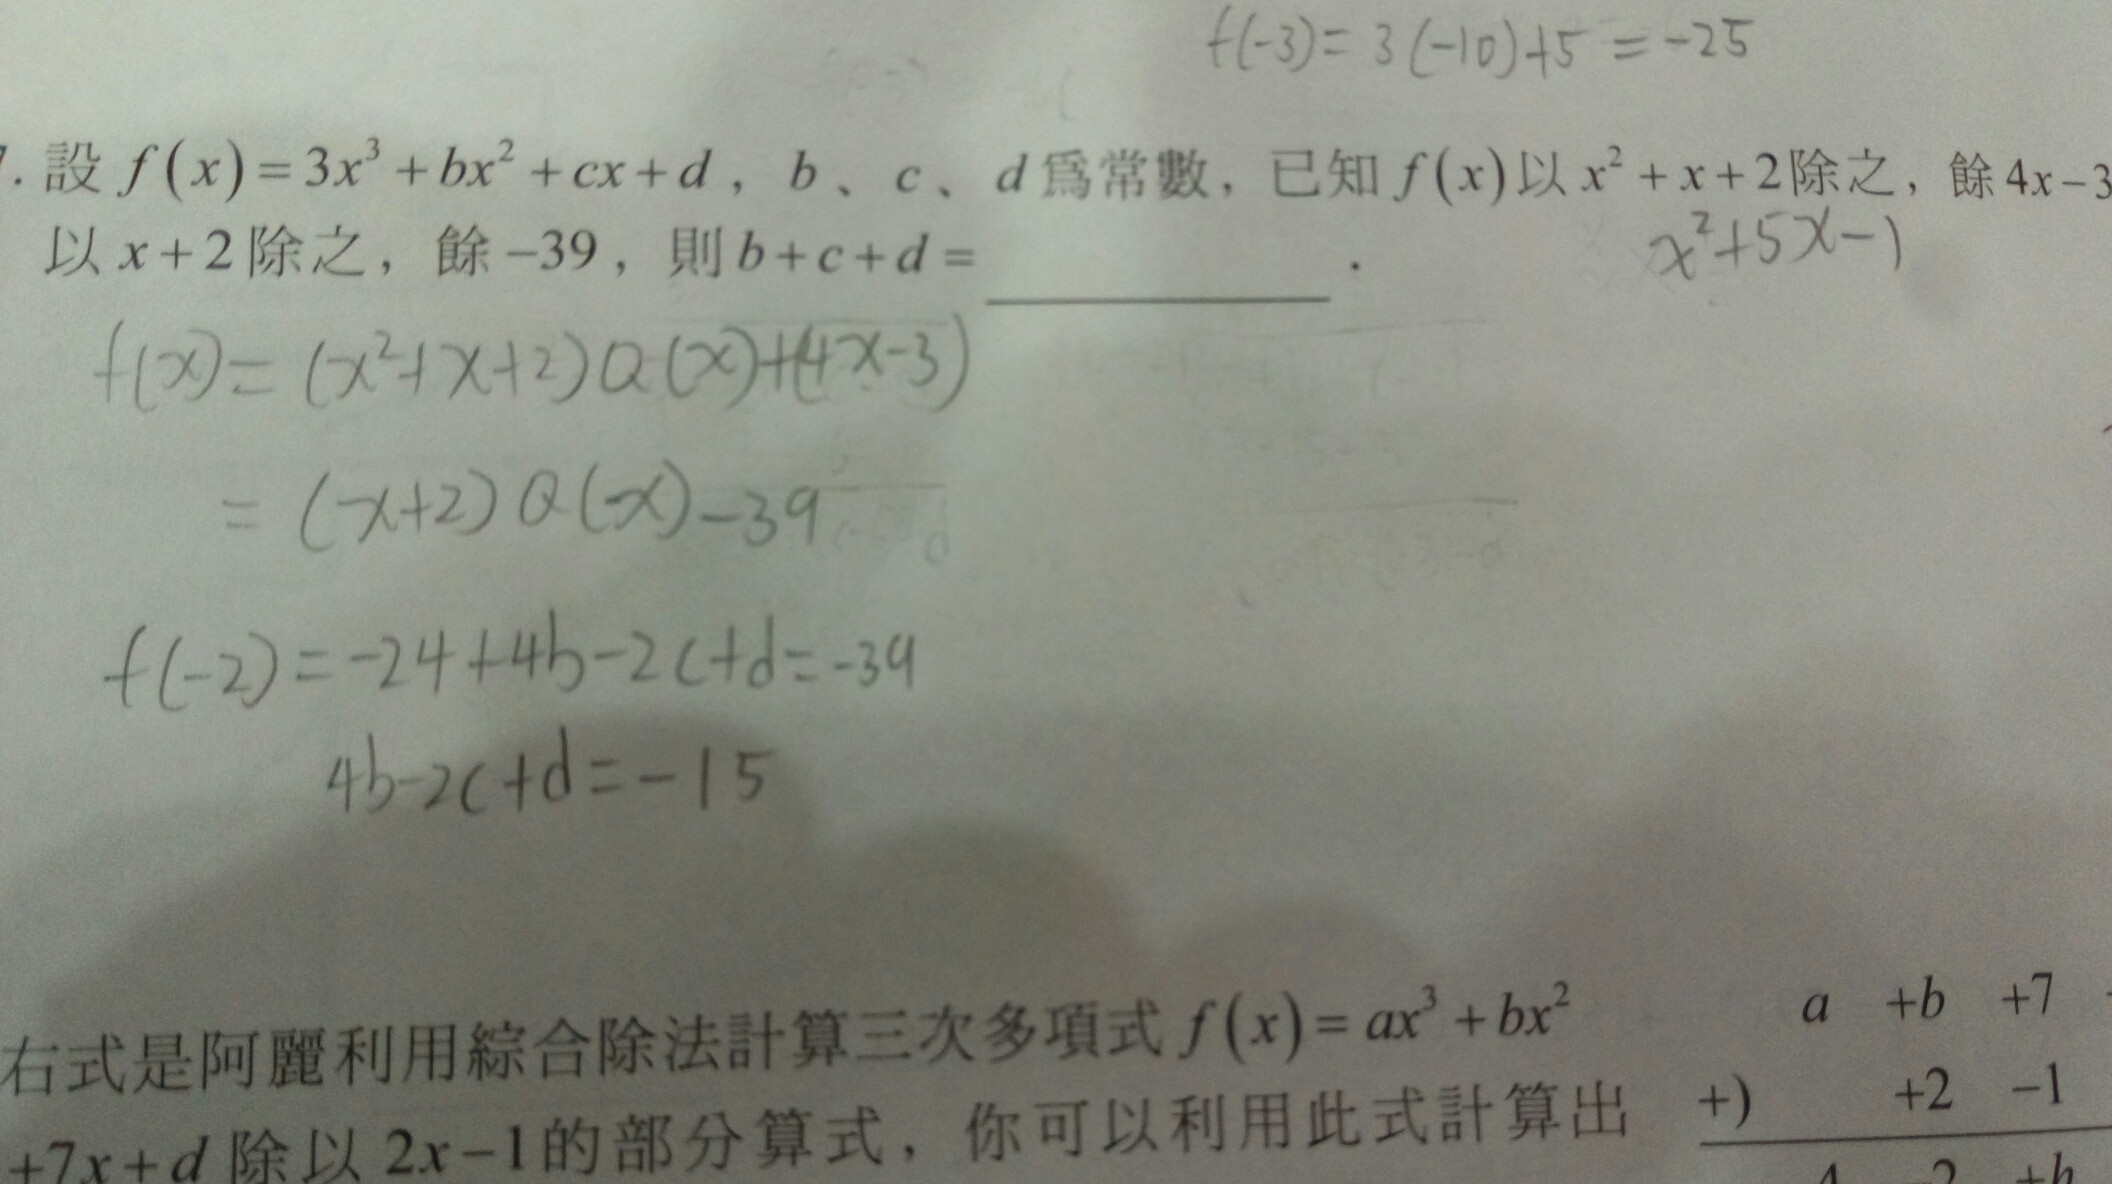 f(-3)=3(-10)+5=-25
. 設 f(x)=3x³+bx²+cx+d，b、c、d爲常數，已知 f(x)以 x²+x+2除之，餘4x-3
以 x+2除之，餘-39，則b+c+d= ．
x²+5x-1
f(x)=(x²+x+2)Q(x)+(4x-3)
=(x+2)Q(x)-39
f(-2)=-24+4b-2c+d=-39
4b-2c+d=-15
右式是阿麗利用綜合除法計算三次多項式 f(x)=ax³+bx²
+7x+d 除以 2x-1的部分算式，你可以利用此式計算出
a +b +7
+) +2 -1